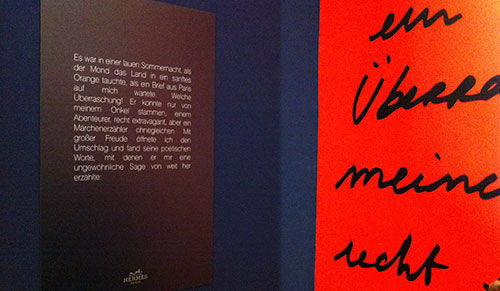 Es war in einer lauen Sommernacht, als
der Mond das Land in ein sanftes
Orange tauchte, als ein Brief aus Paris
auf mich wartete. Welche
Überraschung! Er konnte nur von
meinem Onkel stammen, einem
Abenteurer, recht extravagant, aber ein
Märchenerzähler ohnegleichen. Mit
großer Freude öffnete ich den
Umschlag und fand seine poetischen
Worte, mit denen er mir eine
ungewöhnliche Sage von weit her
erzählte:
HERMÈS
PARIS
ein
Überra
meine
recht